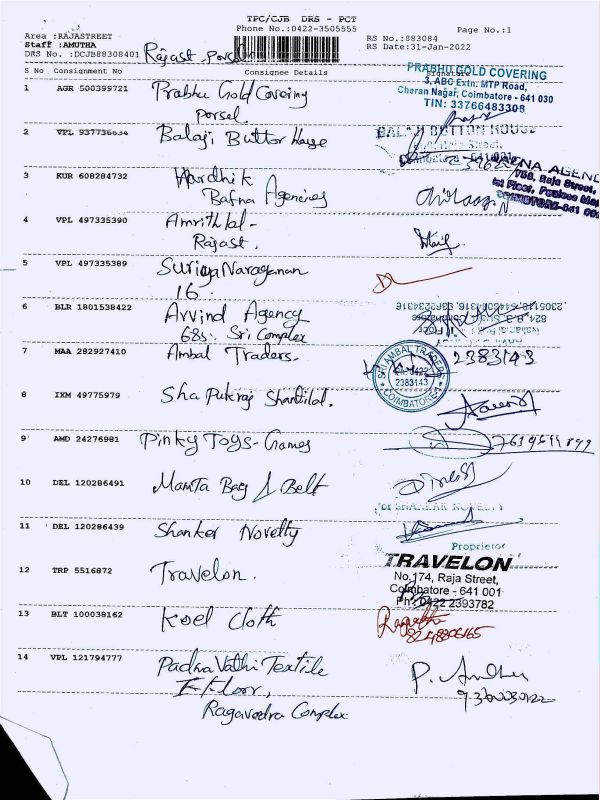 TPC/CJB DRS - PCT
Phone No.:0422-3505555
Page No.:1
Area :RAJASTREET
Staff :AMUTHA
DRS No. :DCJB88308401
RS No.:883084
RS Date:31-Jan-2022
Rajast, Porsel
S No Consignment No Consignee Details Signature
1 AGR 500399721 Prabhu Gold Covering
Porsel
PRABHU GOLD COVERING
3, ABC Extn. MTP Road,
Cheran Nagar, Coimbatore - 641 030
TIN: 33766483308
2 VPL 937736634 Balaji Button House
BALAJI BUTTON HOUSE
3 KUR 608284732 Hardhik
Bafna Agencies
4 VPL 497335390 Amrithlal-
Rajast.
5 VPL 497335389 SuriyaNarayanan
16
6 BLR 1801538422 Arvind Agency
68s. Sri Complex
7 MAA 282927410 Ambal Traders.
SRI AMBAL TRADERS
2383143
COIMBATORE
2383143
8 IXM 49775979 Sha Pukraj Shantilal.
9 AMD 24276981 Pinky Toys-Games
10 DEL 120286491 Mamta Bag & Belt
11 DEL 120286439 Shanker Novelty
Proprietor
12 TRP 5516872 Travelon.
TRAVELON
No.174, Raja Street,
Coimbatore - 641 001
Ph: 0422 2393782
13 BLT 100038162 Koel Cloth
14 VPL 121794777 PadmaVathi Textile
I Floor,
Ragavedra Complex